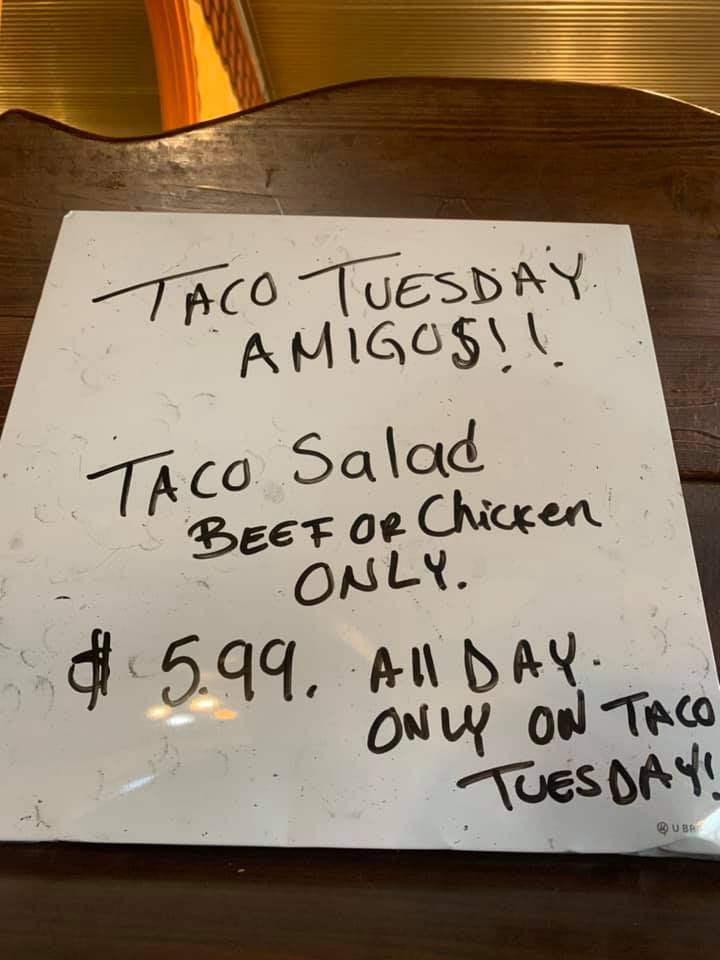 TACO TUESDAY
AMIGO$!!
TACO Salad
BEEF OR Chicken
ONLY.
$ 5.99. All DAY.
ONLY ON TACO
TUESDAY!
U BR